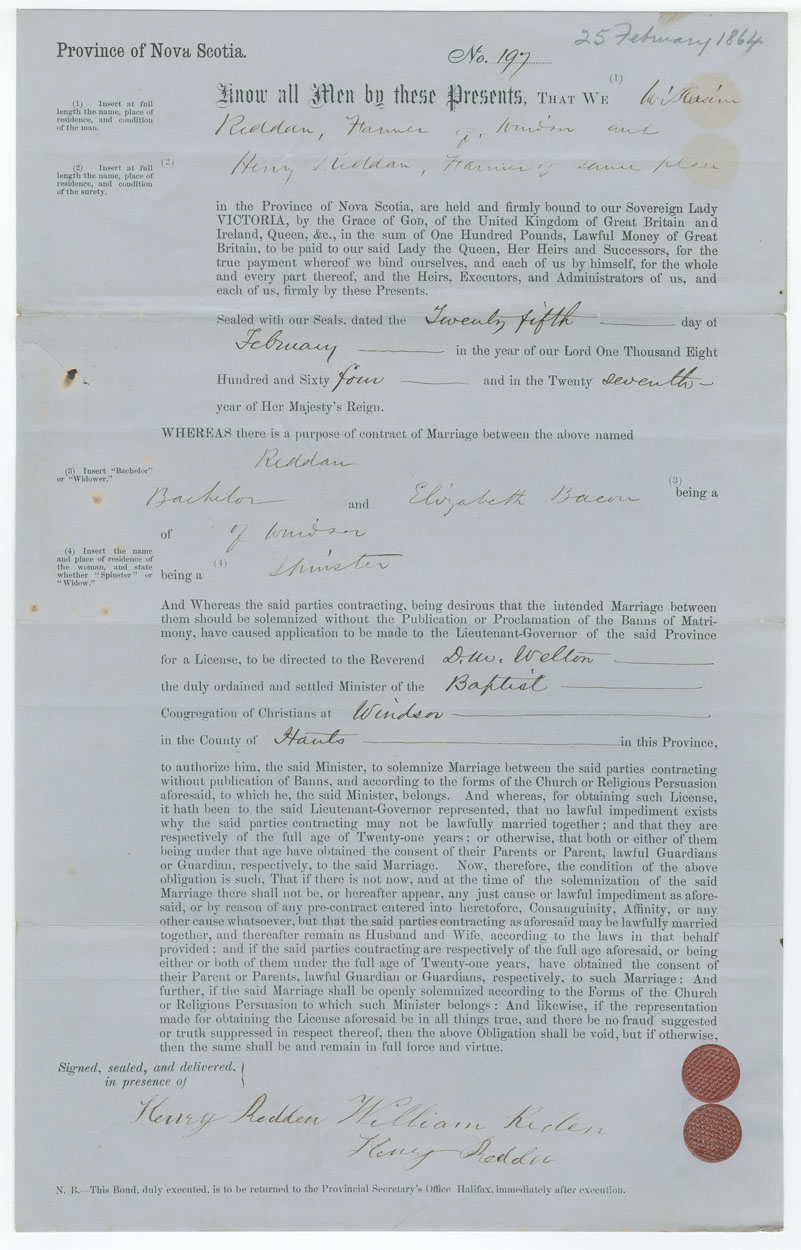 25 February 1864
Province of Nova Scotia.
No. 197
(1) Insert at full
length the name, place of
residence, and condition
of the man.
Know all Men by these Presents, THAT WE (1) William
Reddan, Farmer of Windsor and
(2) Insert at full
length the name, place of
residence, and condition
of the surety.
(2) Henry Reddan, Farmer of same place
in the Province of Nova Scotia, are held and firmly bound to our Sovereign Lady
VICTORIA, by the Grace of GOD, of the United Kingdom of Great Britain and
Ireland, Queen, &c., in the sum of One Hundred Pounds, Lawful Money of Great
Britain, to be paid to our said Lady the Queen, Her Heirs and Successors, for the
true payment whereof we bind ourselves, and each of us by himself, for the whole
and every part thereof, and the Heirs, Executors, and Administrators of us, and
each of us, firmly by these Presents.
Sealed with our Seals, dated the Twenty fifth day of
February in the year of our Lord One Thousand Eight
Hundred and Sixty four and in the Twenty seventh
year of Her Majesty's Reign.
WHEREAS there is a purpose of contract of Marriage between the above named
Reddan
(3) Insert "Bachelor"
or "Widower."
(3) being a
Bachelor and Elizabeth Bacon
of of Windsor
(4) Insert the name
and place of residence of
the woman, and state
whether "Spinster" or
"Widow."
being a (4) Spinster
And Whereas the said parties contracting, being desirous that the intended Marriage between
them should be solemnized without the Publication or Proclamation of the Banns of Matri-
mony, have caused application to be made to the Lieutenant-Governor of the said Province
for a License, to be directed to the Reverend D. M. Welton
the duly ordained and settled Minister of the Baptist
Congregation of Christians at Windsor
in the County of Hants in this Province,
to authorize him, the said Minister, to solemnize Marriage between the said parties contracting
without publication of Banns, and according to the forms of the Church or Religious Persuasion
aforesaid, to which he, the said Minister, belongs. And whereas, for obtaining such License,
it hath been to the said Lieutenant-Governor represented, that no lawful impediment exists
why the said parties contracting may not be lawfully married together; and that they are
respectively of the full age of Twenty-one years; or otherwise, that both or either of them
being under that age have obtained the consent of their Parents or Parent, lawful Guardians
or Guardian, respectively, to the said Marriage. Now, therefore, the condition of the above
obligation is such, That if there is not now, and at the time of the solemnization of the said
Marriage there shall not be, or hereafter appear, any just cause or lawful impediment as afore-
said, or by reason of any pre-contract entered into heretofore, Consanguinity, Affinity, or any
other cause whatsoever, but that the said parties contracting as aforesaid may be lawfully married
together, and thereafter remain as Husband and Wife, according to the laws in that behalf
provided; and if the said parties contracting are respectively of the full age aforesaid, or being
either or both of them under the full age of Twenty-one years, have obtained the consent of
their Parent or Parents, lawful Guardian or Guardians, respectively, to such Marriage: And
further, if the said Marriage shall be openly solemnized according to the Forms of the Church
or Religious Persuasion to which such Minister belongs: And likewise, if the representation
made for obtaining the License aforesaid be in all things true, and there be no fraud suggested
or truth suppressed in respect thereof, then the above Obligation shall be void, but if otherwise,
then the same shall be and remain in full force and virtue.
Signed, sealed, and delivered,
in presence of
Henry Redden William Reden
Henry Redden
N. B.—This Bond, duly executed, is to be returned to the Provincial Secretary's Office Halifax, immediately after execution.